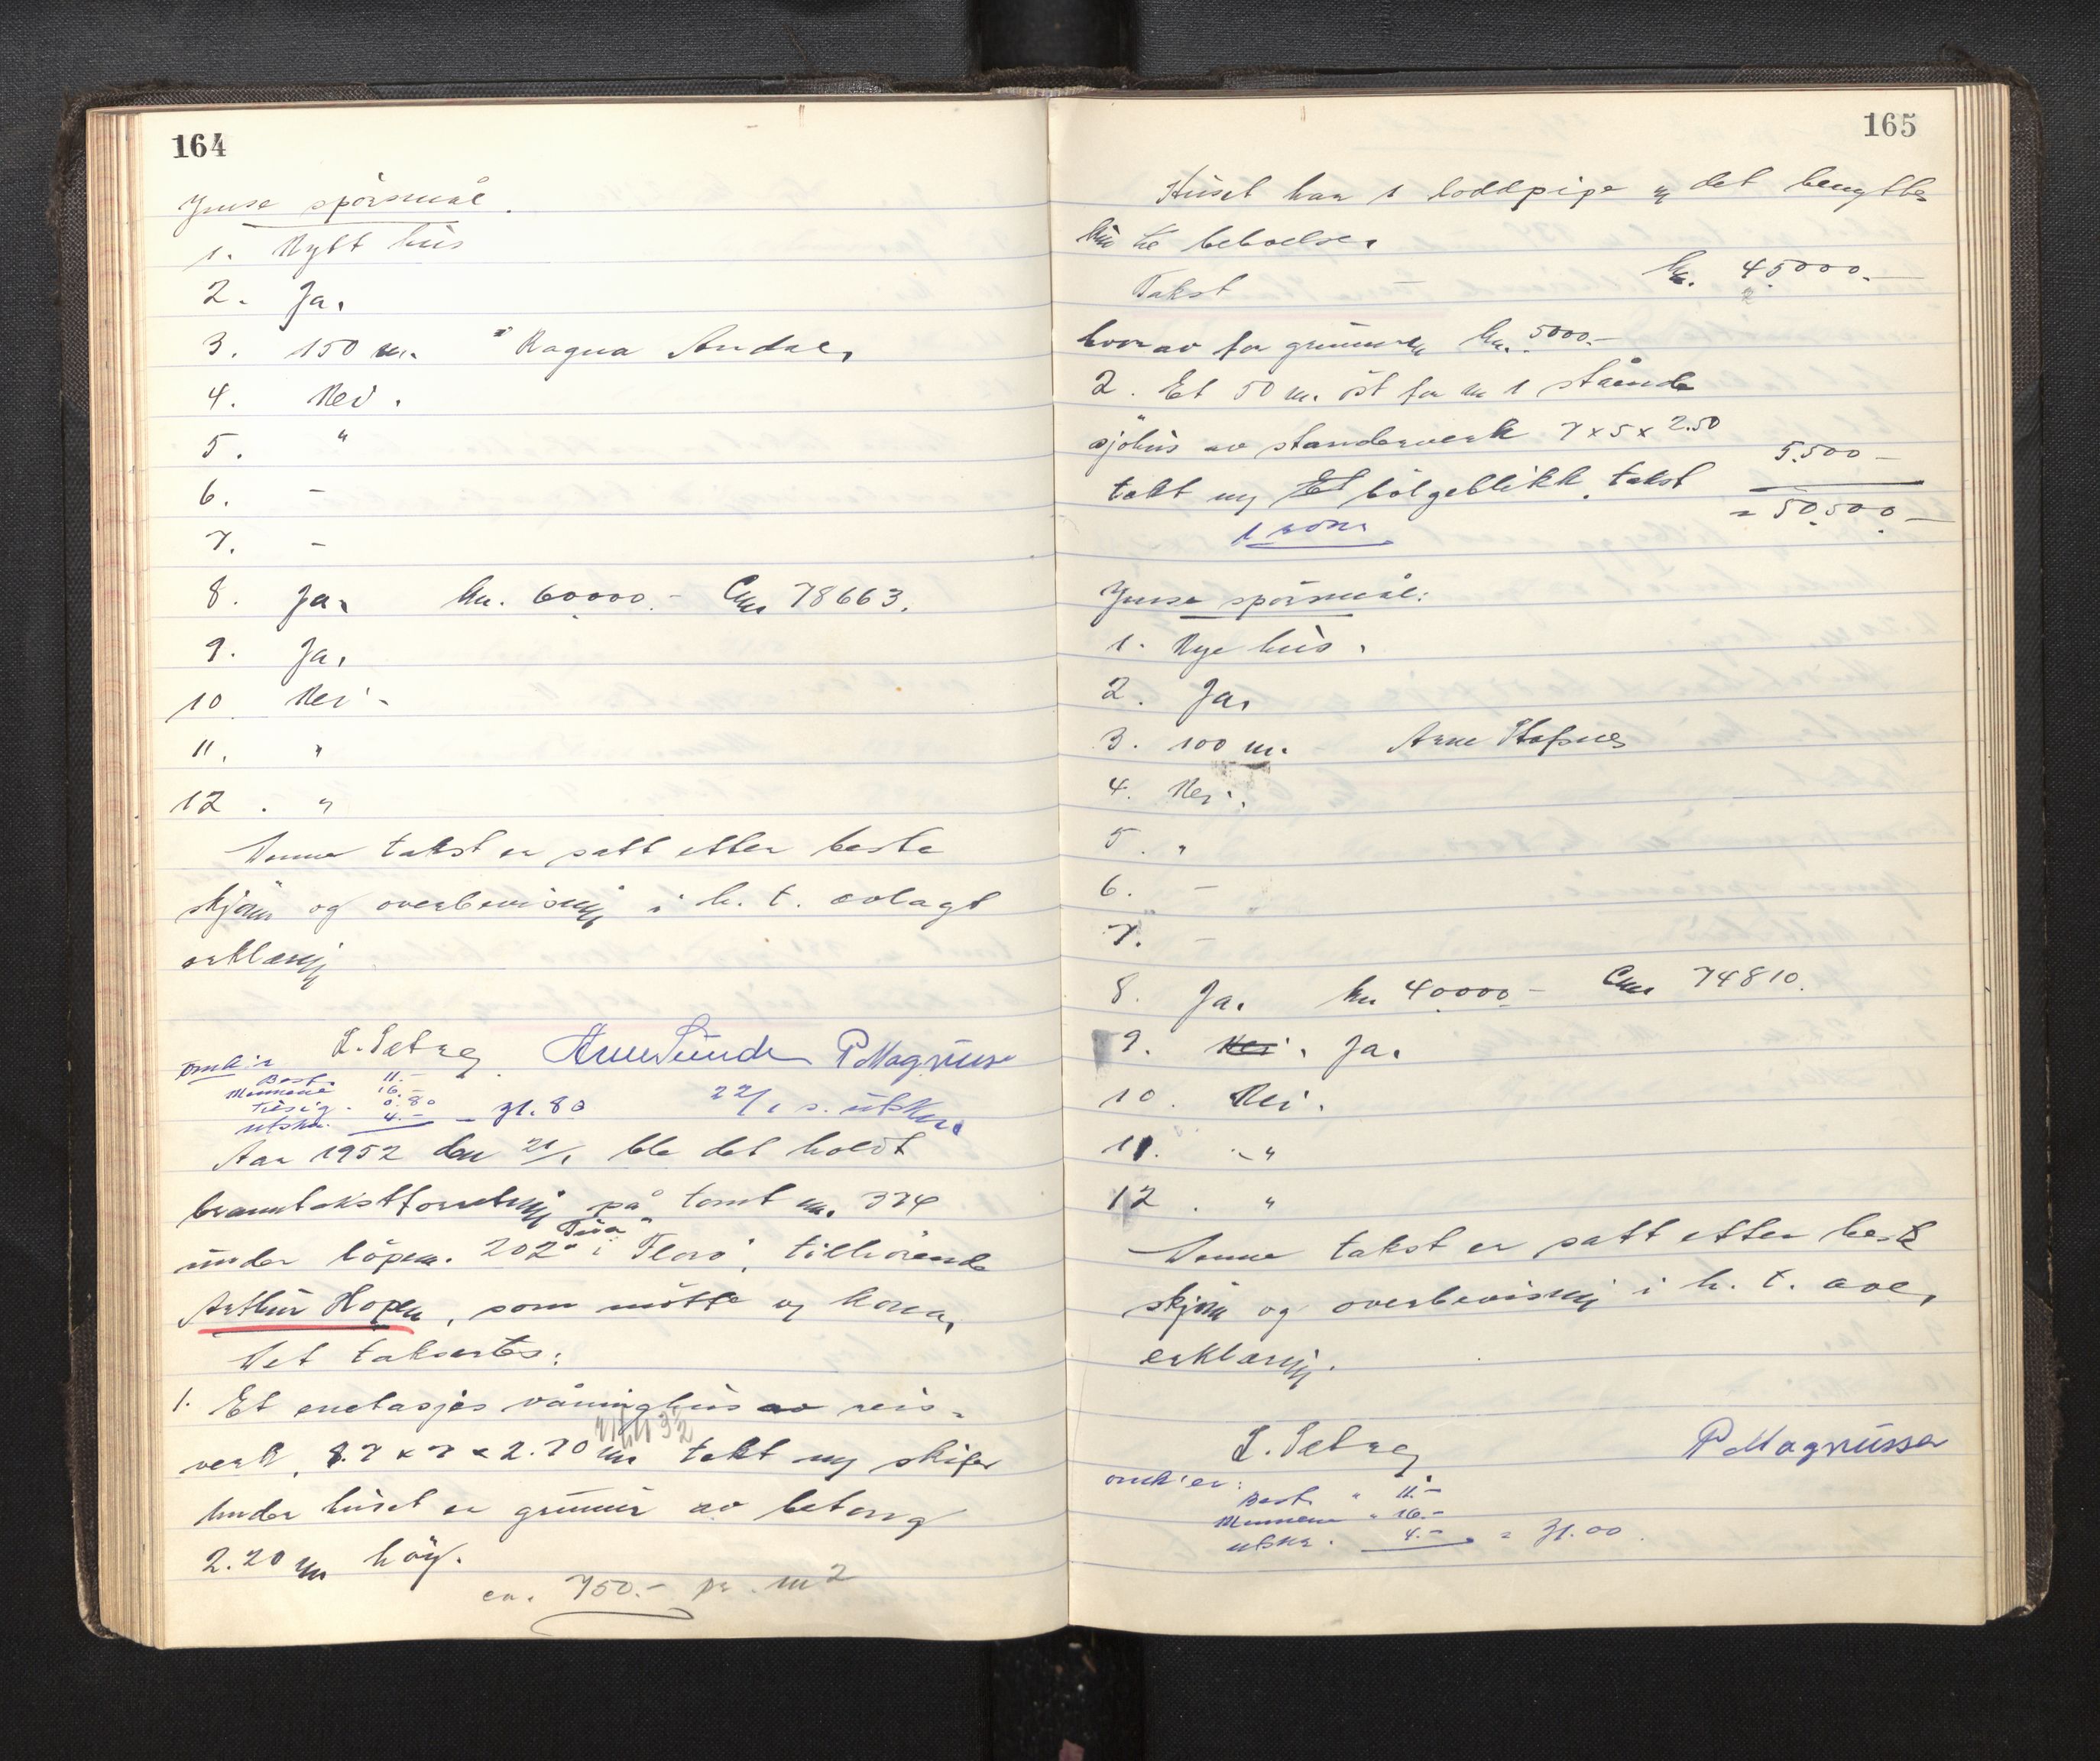 164
Ymse spörsmål.
1. Nytt hus
2. Ja.
3. 150 m. Ragna Andal.
4. Nei.
5. "
6. –
7. –
8. Ja. kr. 60000.– Cmr 78663.
9. Ja.
10 Nei –
11. "
12. "
Denne takst er satt etter beste
skjönn og overbevisning i h. t. avlagt
erklæring
L. Sætre Arne Sunde P Magnussen
Omk:r
Best. 11.–
Mennene 16.–
Tilsig. 0.80
utskr. 4.– – 31.80
22/1 s. utskr.
Aar 1952 den 21/1 ble det holdt
branntakstforretning på tomt nr. 374
under löpenr. 202 i Florö, tilhörende
Arthur Hopen, som mötte og
Det taksertes:
1. Et enetasjes våninghus av reis-
verk, 8.7 x 7 x 2.70 m tekt m/ skifer
Under huset er grunnmur av betong
2.20 m höy.
ca. 750.– pr. m2
165
Huset har 1 loddpipe og det benyttes
kun til beboelse.
Takst kr. 45000.–
hvorav for grunnmuren kr. 5000.–
2. Et 50 m. öst for nr 1 stående
sjöhus av standerverk 7 x 5 x 2.50
tekt m/ Et bölgeblikk. takst 5.500 –
= 50.500 –
1 rom
Ymse spörsmål:
1. Nye hus.
2. Ja.
3. 100 m. Arne Stafsnes
4. Nei.
5. "
6. –
7. –
8. Ja. kr 40000 – Cmr 74810.
9. Nei. Ja.
10. Nei.
11. – "
12. "
Denne takst er satt etter beste
skjönn og overbevisning i h. t. avl.
erklæring.
L. Sætre P Magnussen
Omk'er:
Best. " 11.–
Mennene " 16.–
utskr. 4.– = 31.00